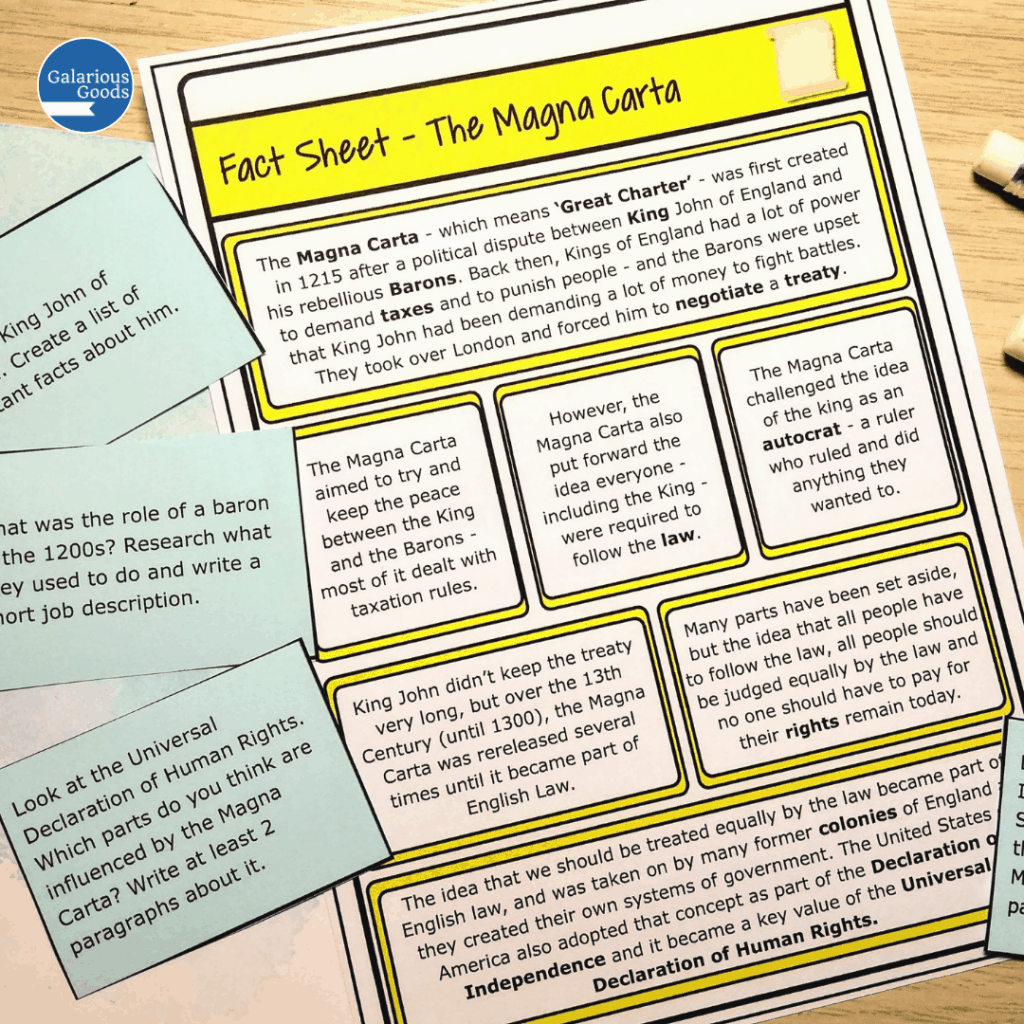 Galarious
Goods
Fact Sheet - The Magna Carta
The Magna Carta - which means ‘Great Charter’ - was first created
in 1215 after a political dispute between King John of England and
his rebellious Barons. Back then, Kings of England had a lot of power
to demand taxes and to punish people - and the Barons were upset
that King John had been demanding a lot of money to fight battles.
They took over London and forced him to negotiate a treaty.
The Magna Carta
aimed to try and
keep the peace
between the King
and the Barons -
most of it dealt with
taxation rules.
However, the
Magna Carta also
put forward the
idea everyone -
including the King -
were required to
follow the law.
The Magna Carta
challenged the idea
of the king as an
autocrat - a ruler
who ruled and did
anything they
wanted to.
King John didn’t keep the treaty
very long, but over the 13th
Century (until 1300), the Magna
Carta was rereleased several
times until it became part of
English Law.
Many parts have been set aside,
but the idea that all people have
to follow the law, all people should
be judged equally by the law and
no one should have to pay for
their rights remain today.
The idea that we should be treated equally by the law became part of
English law, and was taken on by many former colonies of England
they created their own systems of government. The United States
America also adopted that concept as part of the Declaration
Independence and it became a key value of the Universal
Declaration of Human Rights.
King John of
. Create a list of
facts about him.
was the role of a baron
the 1200s? Research what
used to do and write a
job description.
Look at the Universal
Declaration of Human Rights.
Which parts do you think are
influenced by the Magna
Carta? Write at least 2
paragraphs about it.